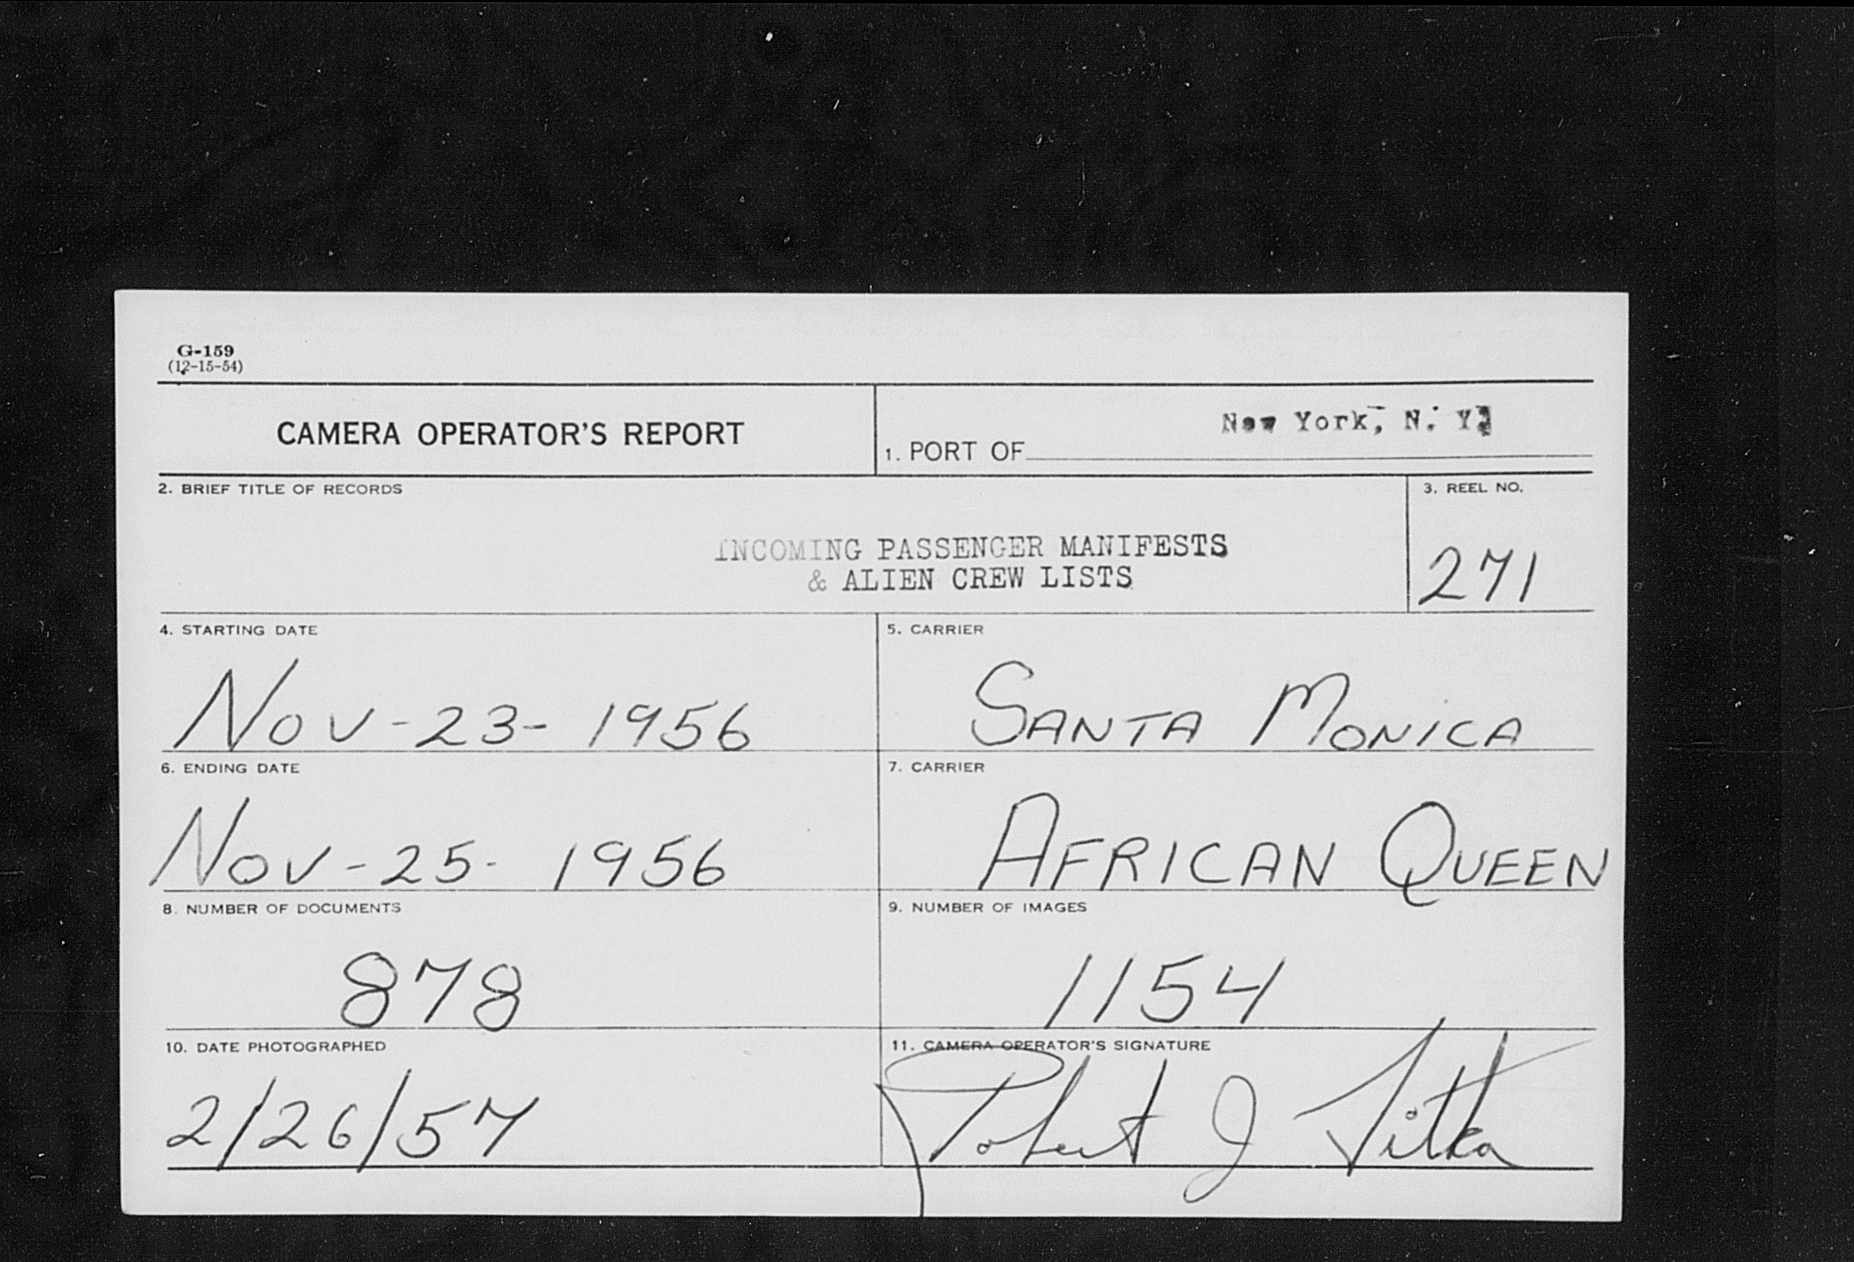 G-159
(12-15-54)
CAMERA OPERATOR'S REPORT
1. PORT OF New York, N. Y.
2. BRIEF TITLE OF RECORDS
INCOMING PASSENGER MANIFESTS
& ALIEN CREW LISTS
3. REEL NO.
271
4. STARTING DATE
Nov-23-1956
5. CARRIER
SANTA MONICA
6. ENDING DATE
Nov-25-1956
7. CARRIER
AFRICAN QUEEN
8. NUMBER OF DOCUMENTS
878
9. NUMBER OF IMAGES
1154
10. DATE PHOTOGRAPHED
2/26/57
11. CAMERA OPERATOR'S SIGNATURE
Robert J